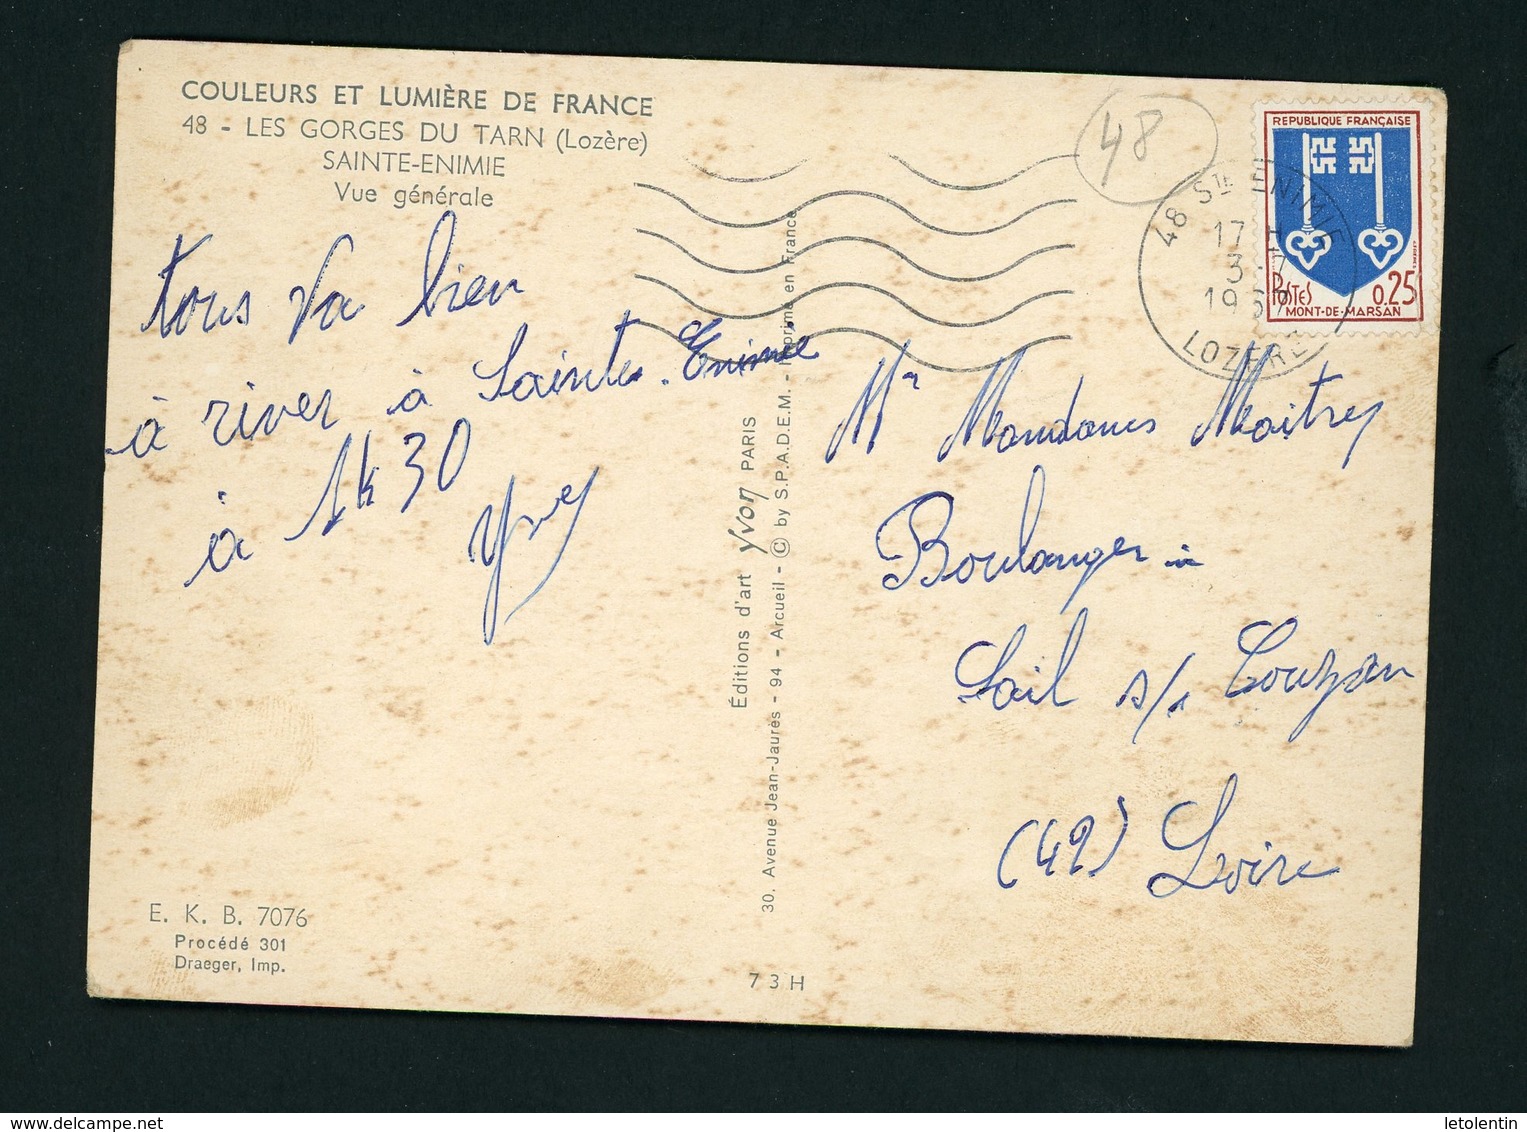 COULEURS ET LUMIÈRE DE FRANCE
48 - LES GORGES DU TARN (Lozère)
SAINTE-ENIMIE
Vue générale
tous va bien
à river à Sainte-Enimie
à 1h30
48
48 STE ENIMIE
17 H
3.7
1967
LOZERE
REPUBLIQUE FRANÇAISE
POSTES 0.25
MONT-DE-MARSAN
Mr
Boulanger à
Sail s/s Couzan
(42) Loire
Éditions d'art yvon PARIS
30, Avenue Jean-Jaurès - 94 - Arcueil - © by S.P.A.D.E.M. - Imprimé en France
E. K. B. 7076
Procédé 301
Draeger, Imp.
7 3 H
delcampe.net
letolentin